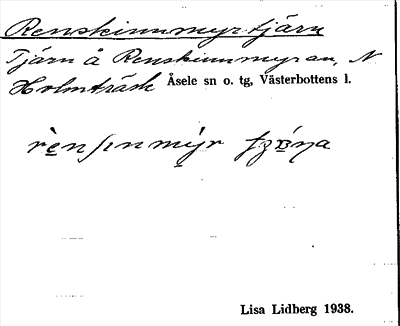 Renskinnmyrtjärn
Tjärn å Renskinnmyran, N
Holmträsk Åsele sn o. tg, Västerbottens l.
Lisa Lidberg 1938.